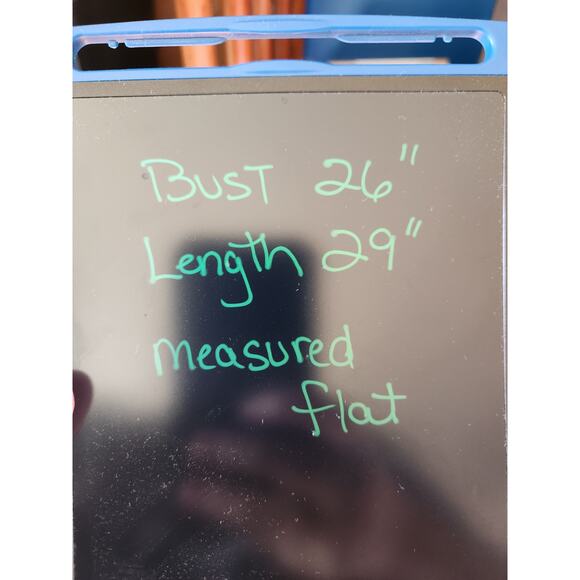 Bust 26"
Length 29"
measured
flat